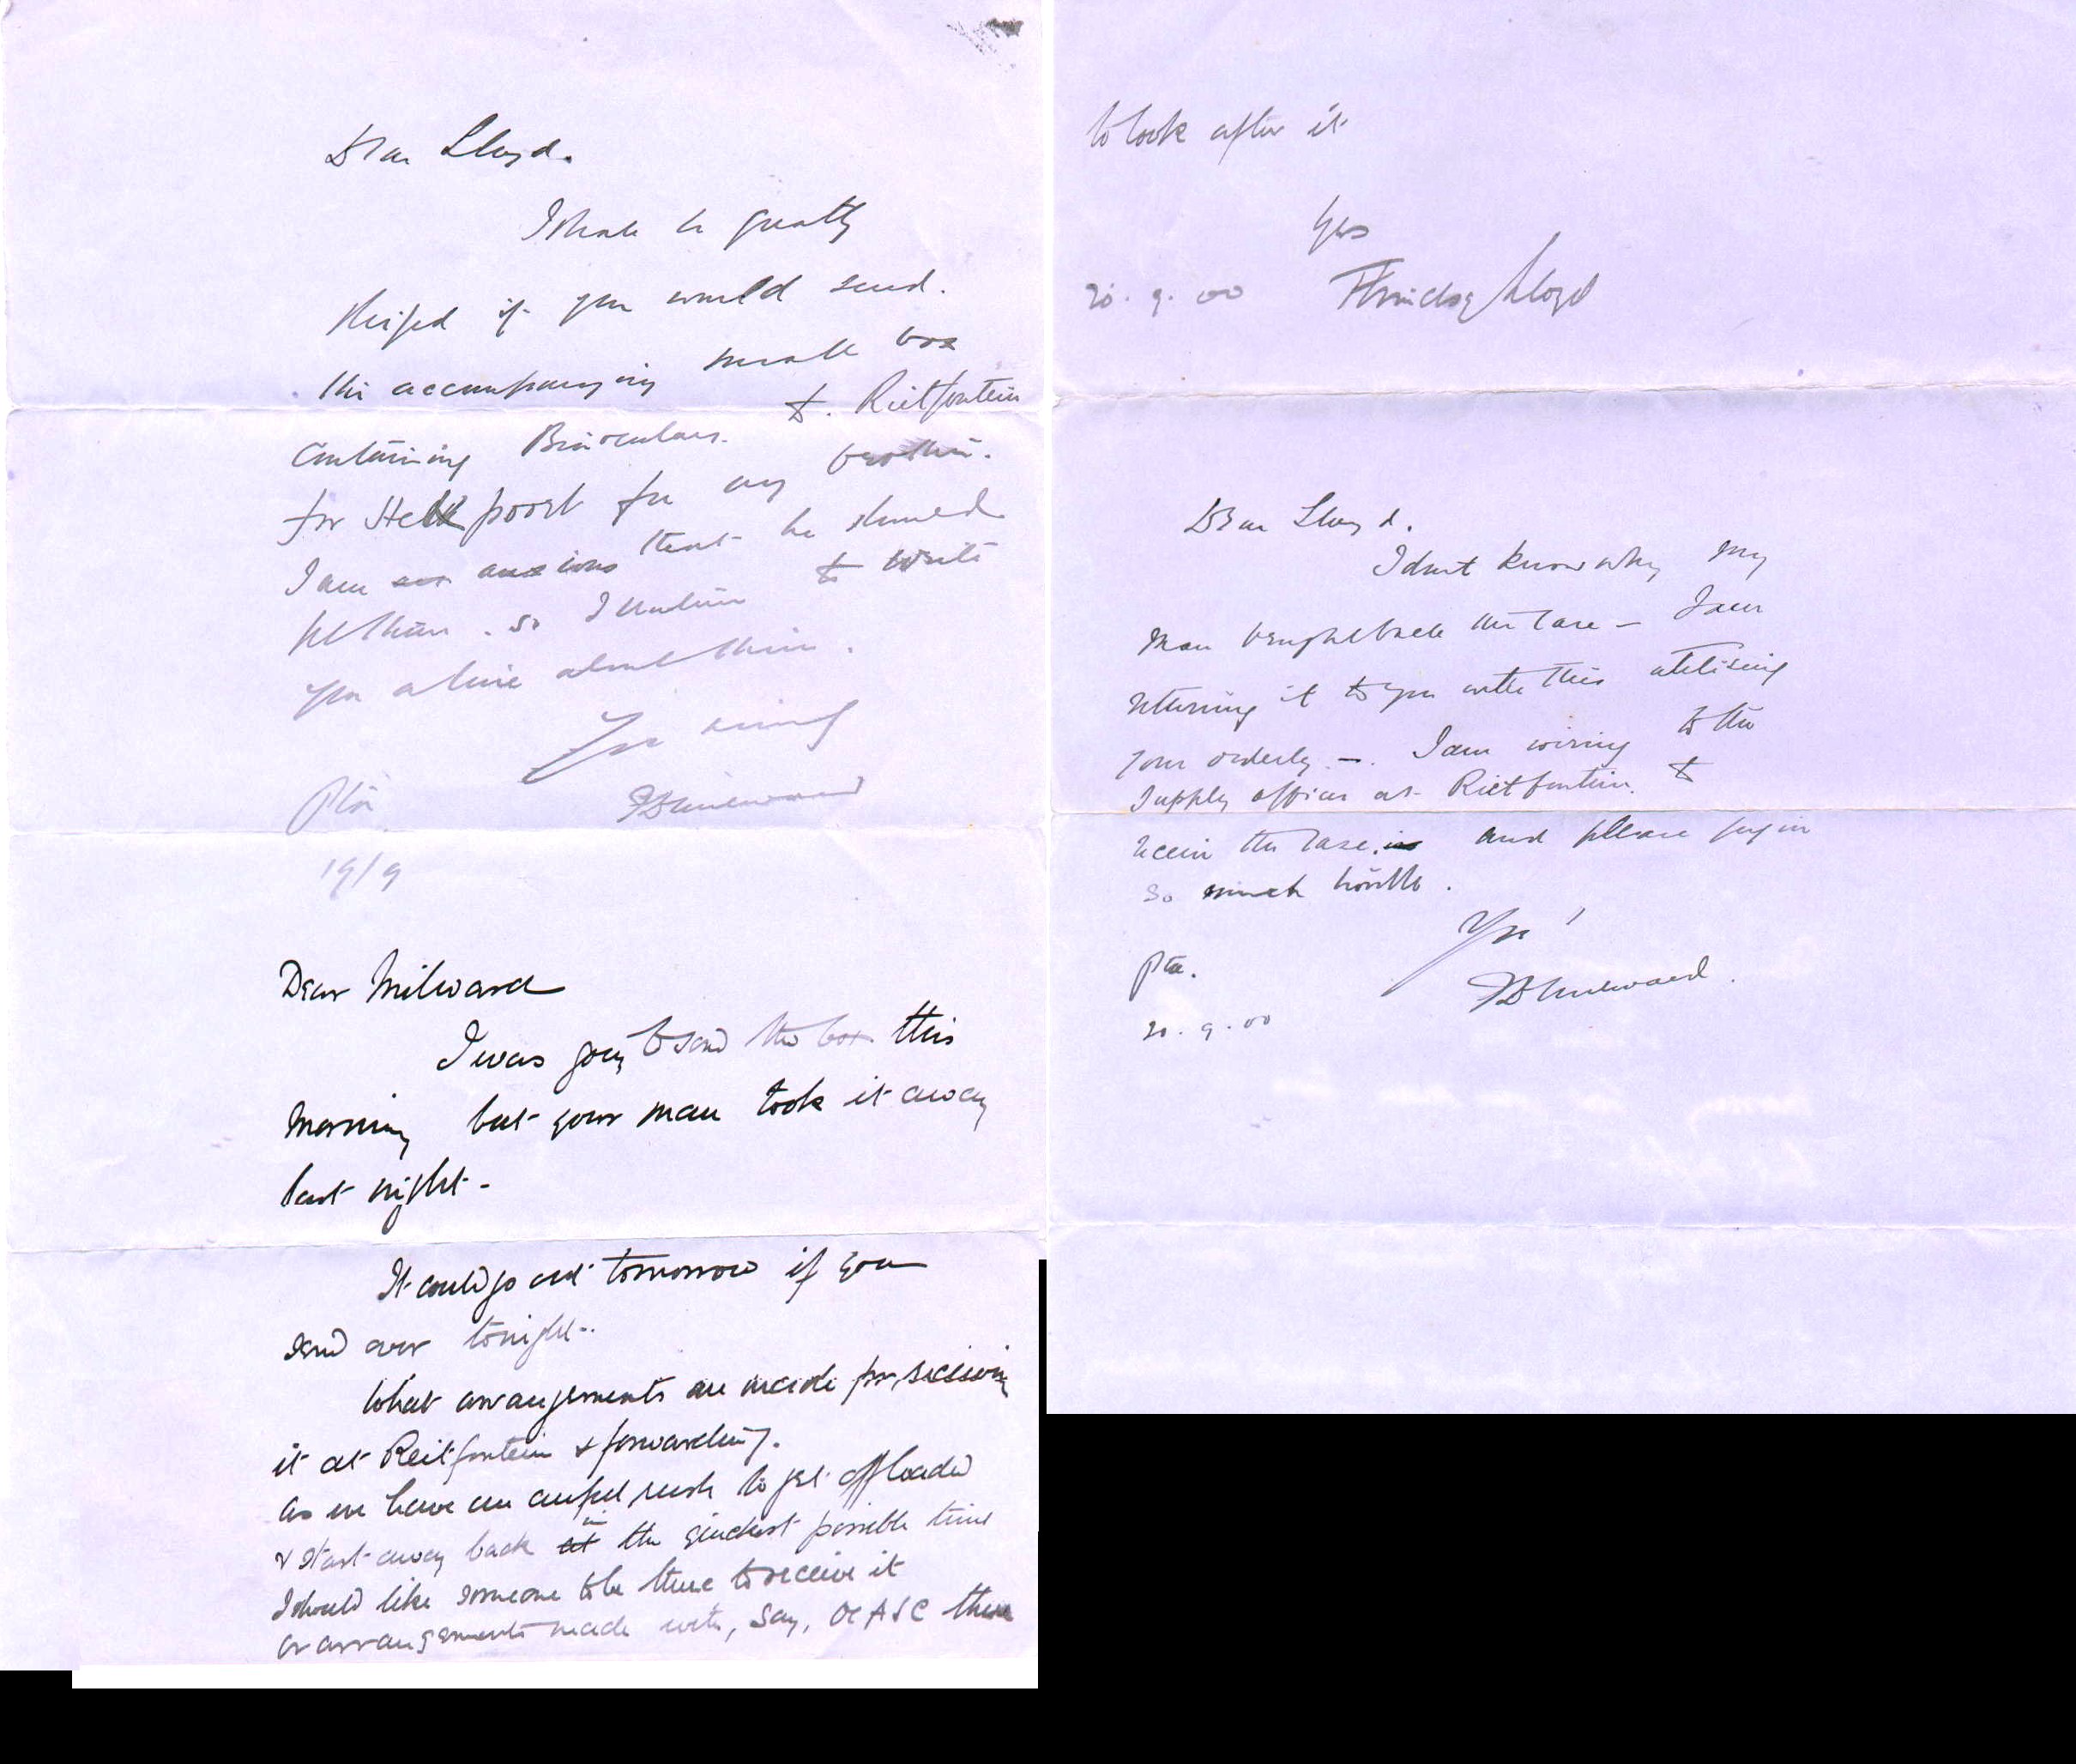 Dear Lloyd.
I shall be greatly
obliged if you would send.
the accompanying small box
containing Binoculars. to Rietfontein
for Hekpoort for my brother.
I am anxious that he should
get them. so I venture to write
you a line about them.
Yrs
Pta. Milward
19/9
Dear Milward
I was going to send the box this
morning but your man took it away
last night -
It could go out tomorrow if you
send over tonight -.
What arrangements are made for receiving
it at Reitfontein & forwarding.
As we have an awful rush to get off loaded
& start away back at in the quickest possible time
I should like someone to be there to receive it
or arrangements made with, say, OC ASC there
to look after it
Yrs
20. 9. 00 Lloyd
Dear Lloyd.
I don't know why my
man brought back the case — I am
returning it to you with this utilising
your orderly —. I am wiring to the
supply officer at Rietfontein. to
receive the case. and please forgive
so much trouble.
Yrs
Pta. Milward.
20. 9. 00